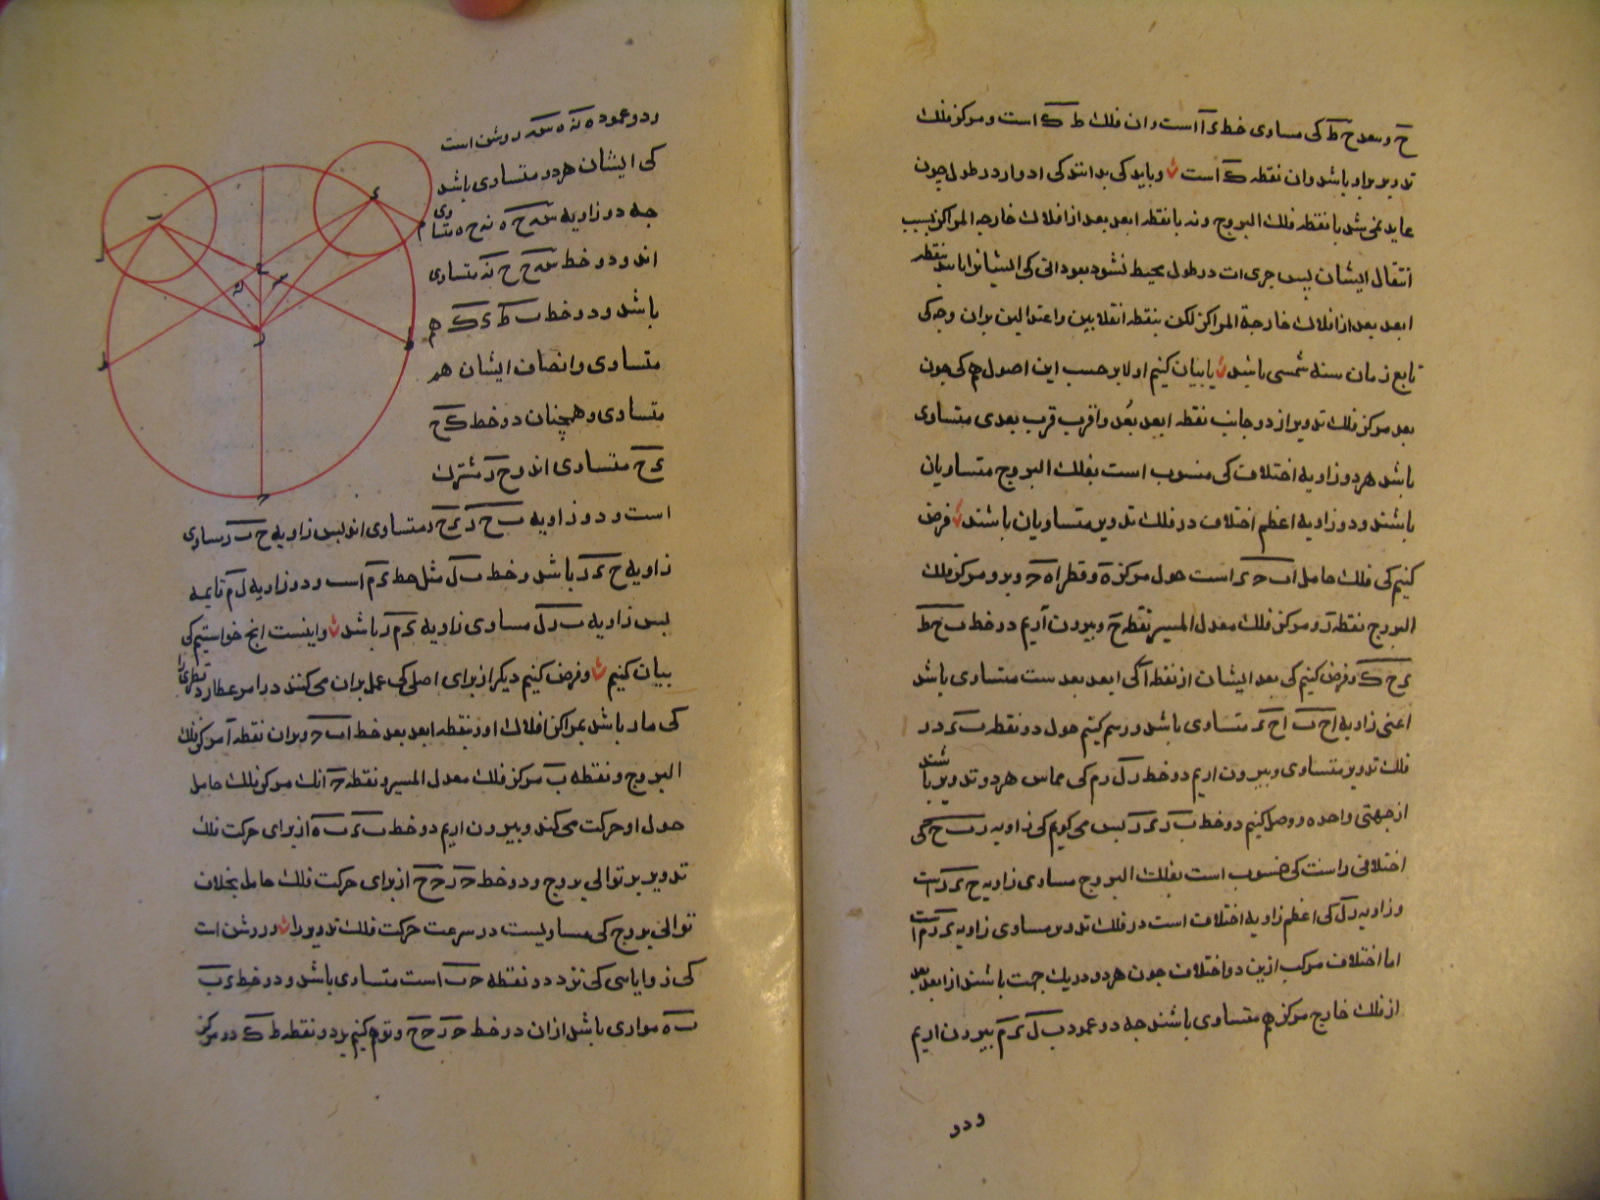 ح و بعد ح ط کی مساوی خط ءا است و ان فلك ط ک است و مرکز فلك
تدویر براو باشد وان نقطه ک است و باید کی بدانند کی ادوار در طول چون
عاید نمی شد با نقطه فلك البروج و نه با نقطه ابعد بعد از افلاك خارجه المراکز بسبب
انتقال ایشان پس جری ات در طول محیط نشود بعوداتی کی ایشانرا باشد بنقطه
ابعد بعد از افلاك خارجة المراکز لکن بنقطه انقلابین و اعتدالین بران وجه کی
تابع زمان سنه شمسی باشد یا بیان کنیم اولا بر حسب این اصول هم کی چون
بعد مرکز فلك تدویر از دو جانب نقطه ابعد بُعد و اقرب قرب بعدی متساوی
باشد هر دو زاویه اختلاف کی منسوب است بفلك البروج متساویان
باشند و دو زاویه اعظم اختلاف در فلك تدویر متساویان باشند فرض
کنیم کی فلك حامل اب ح ء است حول مرکز ه و قطر اه ح و برو مرکز فلك
البروج نقطه ز و مرکز فلك معدل المسیر نقطه ح و بیرون آریم دو خط ب ح ط
ء ح ک و فرض کنیم کی بعد ایشان از نقطه آ کی ابعد بعد ست متساوی باشد
اعنی زاویه اح ب اح ء متساوی باشد و رسم کنیم حول دو نقطه ب ء دو
فلك تدویر متساوی و بیرون اریم دو خط ز ل ز م کی مماس هر دو تدویر باشند
از جهتی واحده و وصل کنیم دو خط ب ز ء ز پس می کویم کی زاویه ز ب ح کی
اختلافی راست کی منسوب است بفلك البروج مساوی زاویه ح ء ز است
و زاویه ب ز ل کی اعظم زاویه اختلاف است در فلك تدویر مساوی زاویه ء ز م است
اما اختلاف مرکب ازین دو اختلاف چون هر دو در یك جهت باشند از ابعد بعد
از فلك خارج مرکز هم متساوی باشند چه دو عمود ب ل ء م بیرون اریم
و دو
و دو عمود ه نه ه سه روشن است
کی ایشان هر دو متساوی باشد
چه دو زاویه سه ح ه نه ح ه متساوی
اند و دو خط سه ح ح نه متساوی
باشد و دو خط ب ط ء ک هم
متساوی و انصاف ایشان هم
متساوی و همچنان دو خط ب ح
ء ح متساوی اند و ح ز مشترك
است و دو زاویه ب ح ز ء ح ز متساوی اند پس زاویه ح ب ز مساوی
زاویه ح ء ز باشد و خط ب ل مثل خط ء م است و دو زاویه ل م قایمه
پس زاویه ب ز ل مساوی زاویه ء ز م باشد و اینست انچ خواستیم کی
بیان کنیم و فرض کنیم دیکر از برای اصلی کی عمل بران می کنند در امر عطارد قطری را
کی مار باشد بمراکز افلاك او و بنقطه ابعد بعد خط اب ح و بران نقطه آ مرکز فلك
البروج و نقطه ب مرکز فلك معدل المسیر و نقطه ح انك مرکز فلك حامل
حول او حرکت می کند و بیرون اریم دو خط ب ء ب ه از برای حرکت فلك
تدویر بر توالی بروج و دو خط ح ز ح ح از برای حرکت فلك حامل بخلاف
توالی بروج کی مساویست در سرعت حرکت فلك تدویر را و روشن است
کی زوایایی کی نزد دو نقطه ح ب است متساوی باشد و دو خط ء ب
ب ه موازی باشد از ان دو خط ح ز ح ح و توهم کنیم بر دو نقطه ط ک دو مرکز